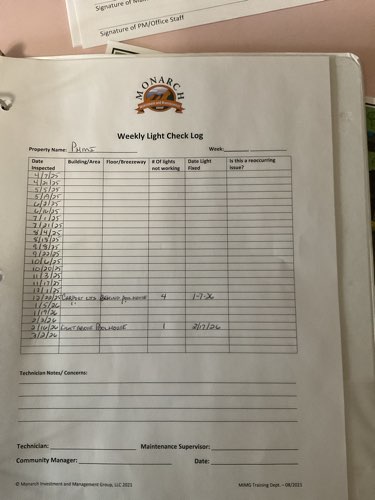 Signature of
Signature of PM/Office Staff
MONARCH
Weekly Light Check Log
Property Name: Palms Week:
Date Inspected Building/Area Floor/Breezeway # Of lights not working Date Light Fixed Is this a reoccurring issue?
4/7/25
4/21/25
5/5/25
5/19/25
6/2/25
6/16/25
7/1/25
7/21/25
8/4/25
8/18/25
9/8/25
9/22/25
10/6/25
10/20/25
11/3/25
11/17/25
12/1/25
12/22/25 Carport Lts Behind Poolhouse 4 1-7-26
1/5/26 "
1/19/26
2/2/26
2/16/26 Light above Poolhouse 1 2/17/26
3/2/26
Technician Notes/ Concerns:
Technician: Maintenance Supervisor:
Community Manager: Date:
© Monarch Investment and Management Group, LLC 2021 MIMG Training Dept. – 08/2021